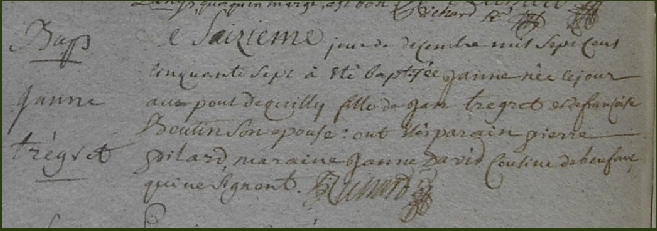 qu'en marge, est bon
Richard
Bap
Janne
trégret
Le Saizieme jour de decembre mil sept cens
cinquante sept à été baptisée Janne née le jour
au pont de quilly fille de Jan tregret et defrançoise
Boutin son epouse : ont étés parain pierre
pilard, maraine Janne David Cousine de l'enfant
qui ne signent. Richard